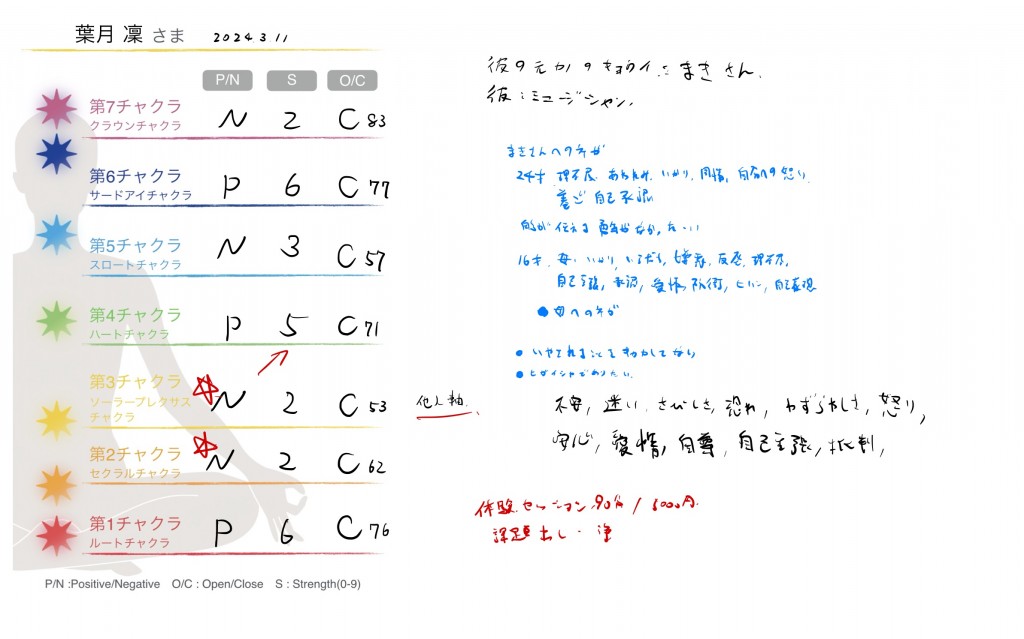 葉月 凜 さま 2024.3.11
P/N S O/C
第7チャクラ
クラウンチャクラ
N 2 C 83
第6チャクラ
サードアイチャクラ
P 6 C 77
第5チャクラ
スロートチャクラ
N 3 C 57
第4チャクラ
ハートチャクラ
P 5 C 71
第3チャクラ
ソーラープレクサス
チャクラ
N 2 C 53
他人軸
第2チャクラ
セクラルチャクラ
N 2 C 62
第1チャクラ
ルートチャクラ
P 6 C 76
P/N :Positive/Negative O/C : Open/Close S : Strength(0-9)
彼の元カノのキョウイ:まきさん.
彼:ミュージシャン.
まきさんへのネガ
24才 理不尽 あわれみ いかり, 同情, 自分への怒り,
自己承認
16才. いかり, 反発, 理不尽,
自己主張, 承認, 愛情,
母へのネガ
不安, 迷い, さびしさ, 恐れ, わずらわしさ, 怒り,
安心, 愛情, 自尊, 自己主張, 批判,
体験セッション 90分 / 6000円
課題出し・浄